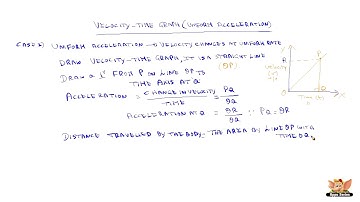 VELOCITY-TIME GRAPH (UNIFORM ACCELERATION)
CASE 2) UNIFORM ACCELERATION → VELOCITY CHANGES AT UNIFORM RATE
DRAW VELOCITY-TIME GRAPH, IT IS A STRAIGHT LINE
(OP)
DRAW A ⊥r FROM P ON LINE OP TO
TIME AXIS AT Q
ACCELERATION = CHANGE IN VELOCITY / TIME = PQ / OQ
ACCELERATION AT Q = OR / OQ ∵ PQ = OR
DISTANCE TRAVELLED BY THE BODY - THE AREA BY LINE OP WITH
TIME OQ.
Y
R
P
VELOCITY
O
Q
X
TIME